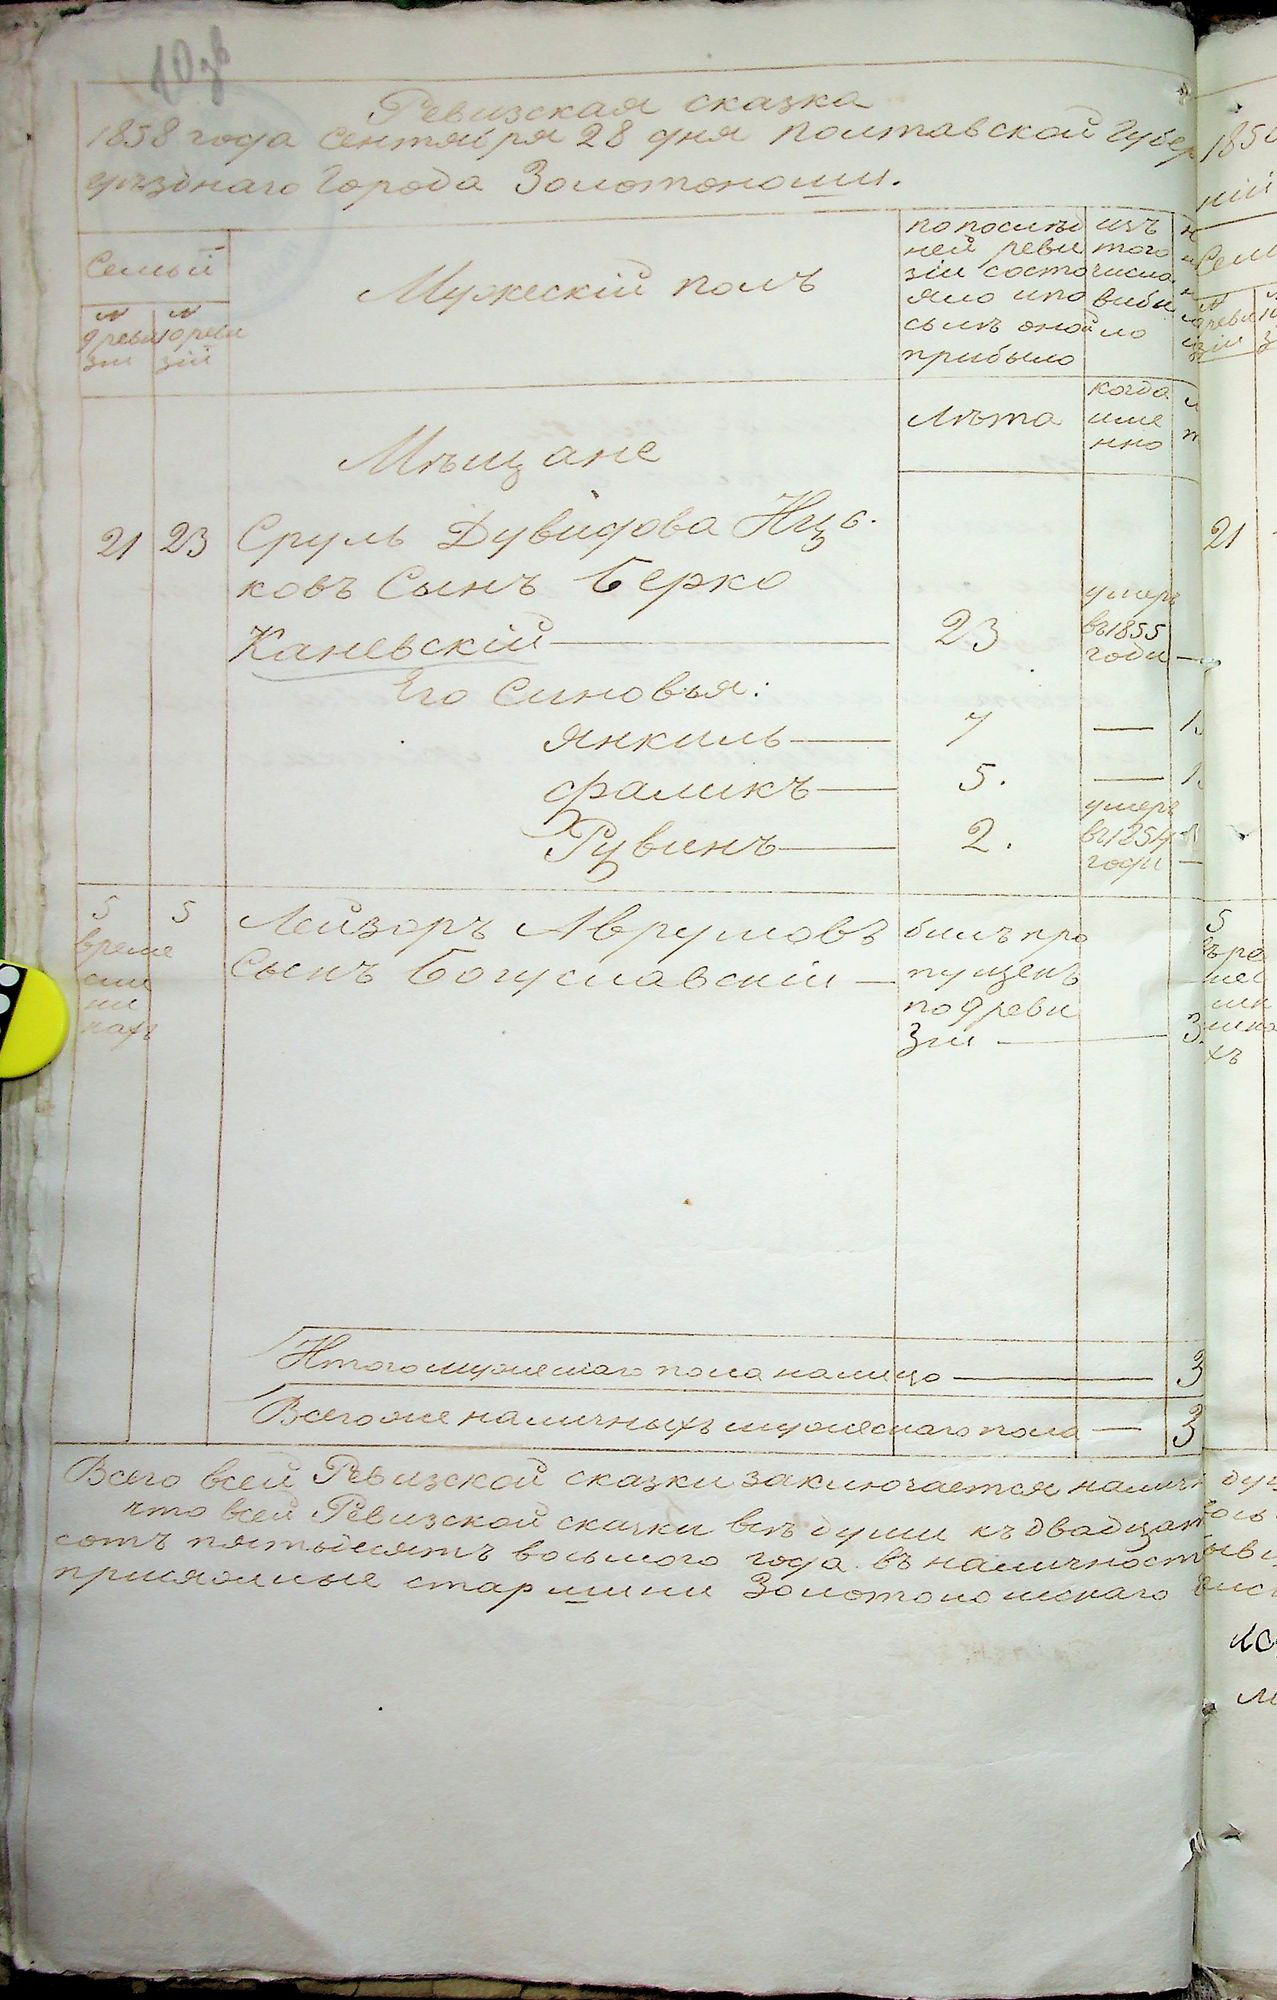 10
Ревизская сказка
1858 года Сентября 28 дня Полтавской Губер
уезднаго Города Золотоноши.
Семьй
№ 9 ревизии
№ 10 ревизій
Мужескій полъ
по послѣд
ней реви
зіи состо
яло и по
слѣ оной
прибыло
изъ
того
числа
выбы
ло
Лѣта
когда
име
нно
Мѣщане
21 23 Сруль Дувидова Ицъ
ковъ Сынъ Берко
Каневскій — 23
умеръ
въ 1855
годи —
Его Синовья:
Янкиль — 7 —
Фаликъ — 5. —
Рувинъ — 2.
умеръ
въ 1854
годи —
5
5 Лейзоръ Аврумовъ
Сынъ Богуславскій —
билъ про
пущенъ
по 9 реви
зіи — 3
Итого мужескаго пола налицо — 3
Всего же наличныхъ мужескаго пола — 3
Всего всей Ревизской сказки заключается налич
что всей Ревизской сказки всѣ души къ двадцат
сотъ пятьдесятъ восьмого года въ наличност
присяжные старшини Золотоношскаго
1850
21
5